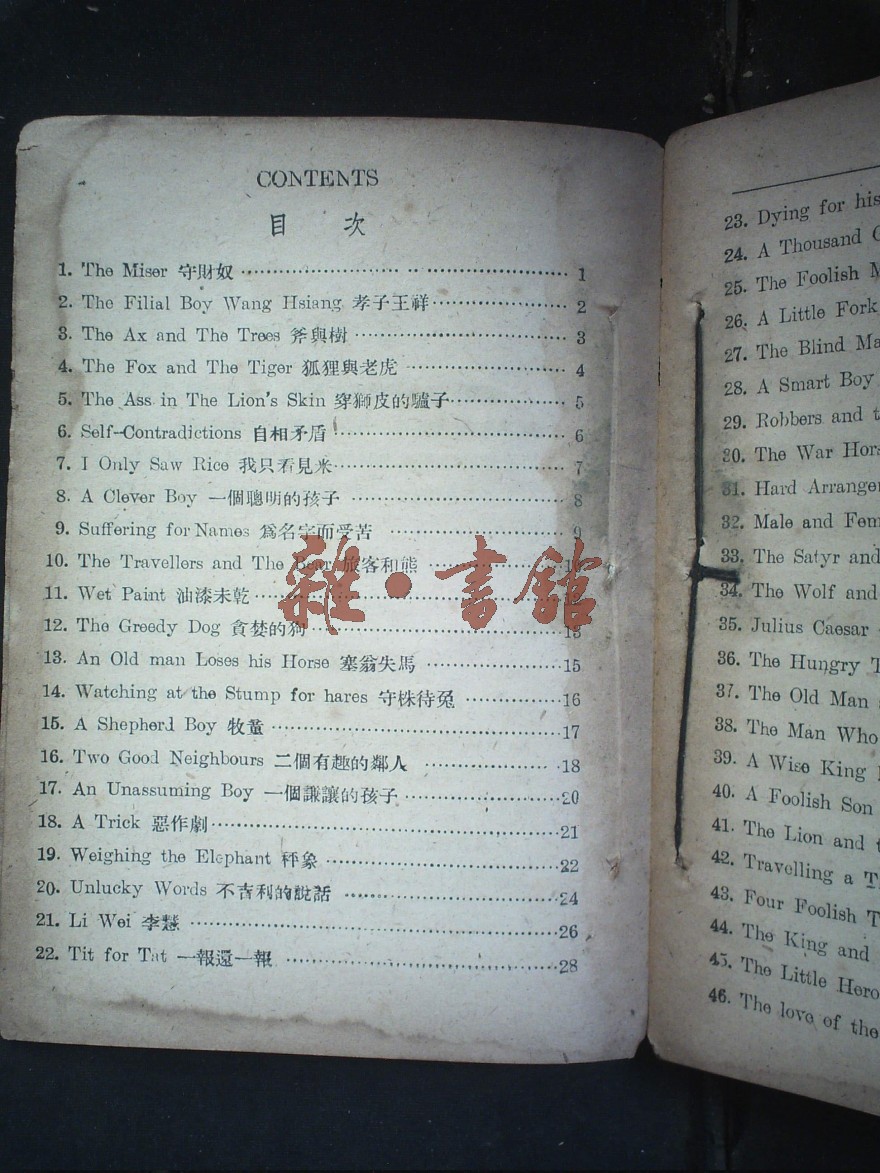 CONTENTS
目 次
1. The Miser 守財奴 1
2. The Filial Boy Wang Hsiang 孝子王祥 2
3. The Ax and The Trees 斧與樹 3
4. The Fox and The Tiger 狐狸與老虎 4
5. The Ass in The Lion's Skin 穿獅皮的驢子 5
6. Self-Contradictions 自相矛盾 6
7. I Only Saw Rice 我只看見米 7
8. A Clever Boy 一個聰明的孩子 8
9. Suffering for Names 爲名字而受苦 9
10. The Travellers and The Bear 旅客和熊
11. Wet Paint 油漆未乾
12. The Greedy Dog 貪婪的狗 13
13. An Old man Loses his Horse 塞翁失馬 15
14. Watching at the Stump for hares 守株待兔 16
15. A Shepherd Boy 牧童 17
16. Two Good Neighbours 二個有趣的鄰人 18
17. An Unassuming Boy 一個謙讓的孩子 20
18. A Trick 惡作劇 21
19. Weighing the Elephant 秤象 22
20. Unlucky Words 不吉利的說話 24
21. Li Wei 李 26
22. Tit for Tat 一報還一報 28
雜·書館
23. Dying for his
24. A Thousand
25. The Foolish
26. A Little Fork
27. The Blind
28. A Smart Boy
29. Robbers and
30. The War
31. Hard
32. Male and
33. The Satyr and
34. The Wolf and
35. Julius Caesar
36. The Hungry
37. The Old Man
38. The Man Who
39. A Wise King
40. A Foolish Son
41. The Lion and
42. Travelling a
43. Four Foolish
44. The King and
45. The Little Hero
46. The love of the